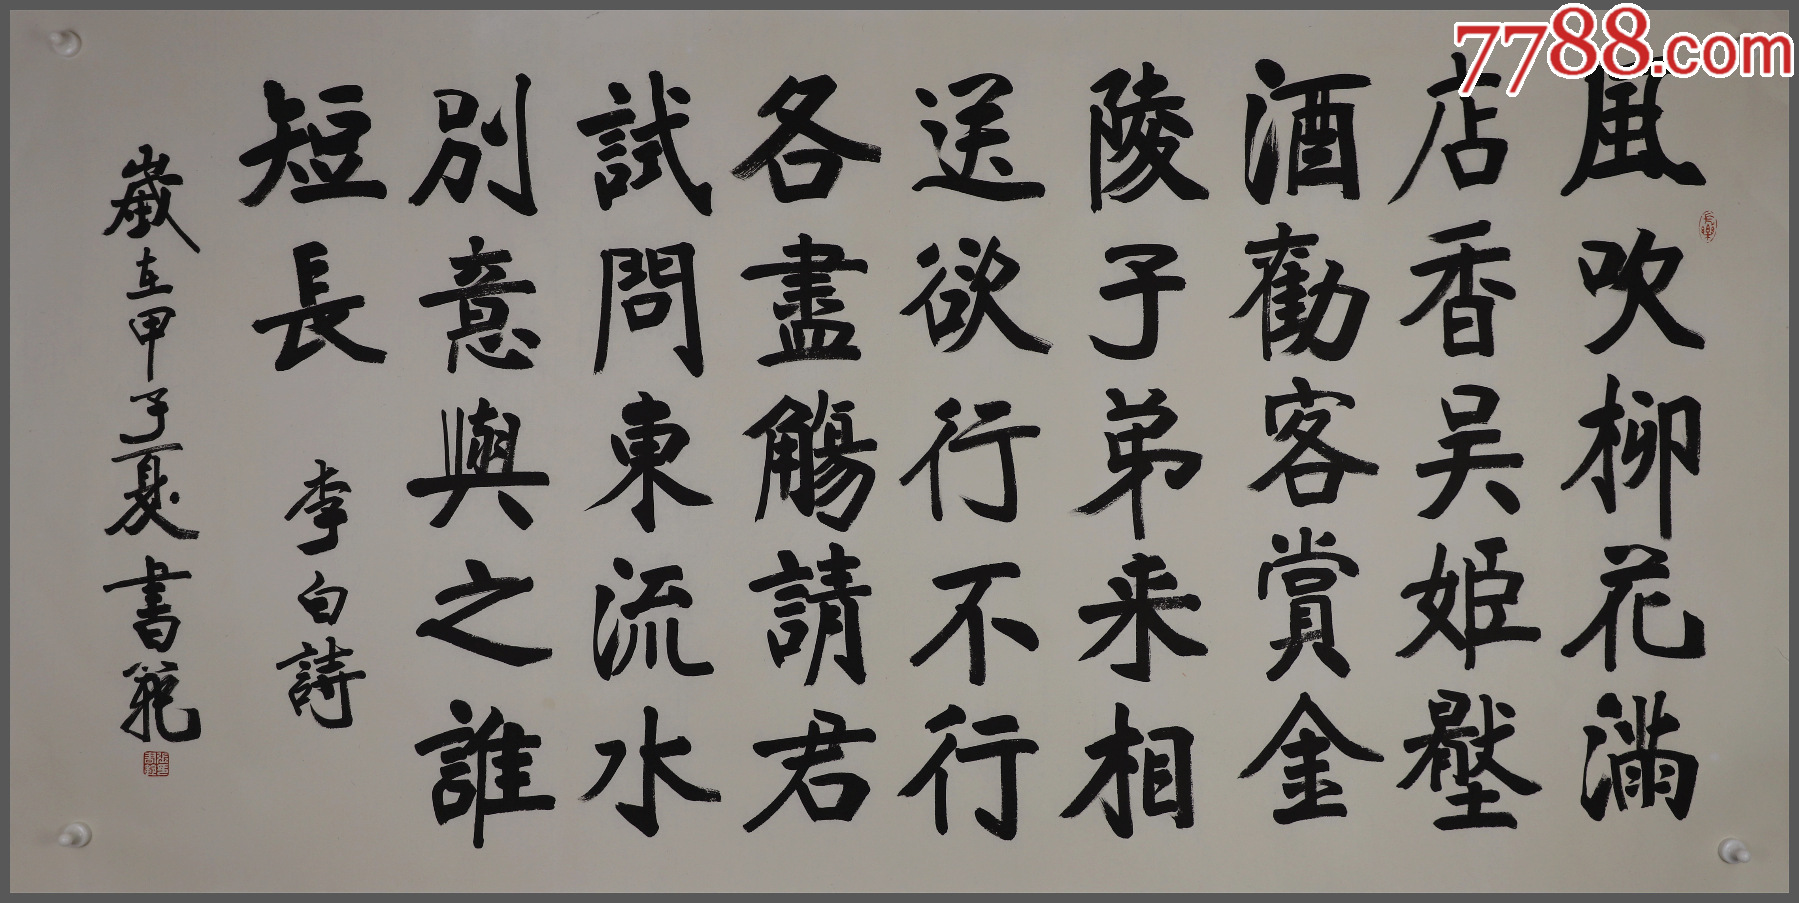 7788.com
風吹柳花滿
店香吴姬壓
酒勸客賞金
陵子弟来相
送欲行不行
各盡觴請君
試問東流水
別意與之誰
短長
李白詩
歲在甲子夏書範